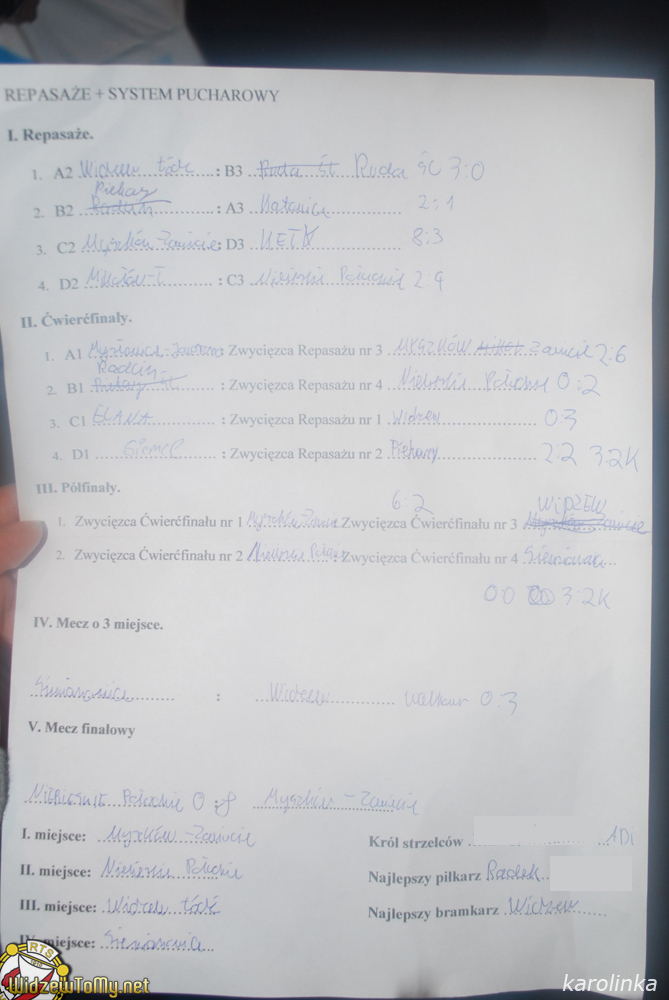 REPASAŻE + SYSTEM PUCHAROWY
I. Repasaże.
1. A2 Widzew Łódź : B3 Ruda Śl Ruda Śl 3:0
Piekary
2. B2 Radlin : A3 Katowice 2:1
3. C2 Myszków-Zawiercie : D3 KETY 8:3
4. D2 : C3 Niebieskie Południe 2:9
II. Ćwierćfinały.
1. A1 Mysłowice-Jaworzno : Zwycięzca Repasażu nr 3 MYSZKÓW Zawiercie 2:6
Radlin
2. B1 Piekary Śl : Zwycięzca Repasażu nr 4 Niebieskie Południe 0:2
3. C1 ELANA : Zwycięzca Repasażu nr 1 Widzew 0:3
4. D1 : Zwycięzca Repasażu nr 2 Piekary 2:2 3:2K
III. Półfinały.
6:2 WIDZEW
1. Zwycięzca Ćwierćfinału nr 1 Myszków Zawiercie : Zwycięzca Ćwierćfinału nr 3 Myszków Zawiercie
2. Zwycięzca Ćwierćfinału nr 2 Niebieskie Południe : Zwycięzca Ćwierćfinału nr 4 Siemianowice
0:0 3:2K
IV. Mecz o 3 miejsce.
Siemianowice : Widzew walkower 0:3
V. Mecz finałowy
NIEBIESKIE Południe 0:8 Myszków-Zawiercie
I. miejsce: Myszków-Zawiercie
Król strzelców ADI
II. miejsce: Niebieskie Południe
Najlepszy piłkarz Radek
III. miejsce: Widzew Łódź
Najlepszy bramkarz Widzew
IV. miejsce: Siemianowice
RTS
WidzewToMy.net
karolinka